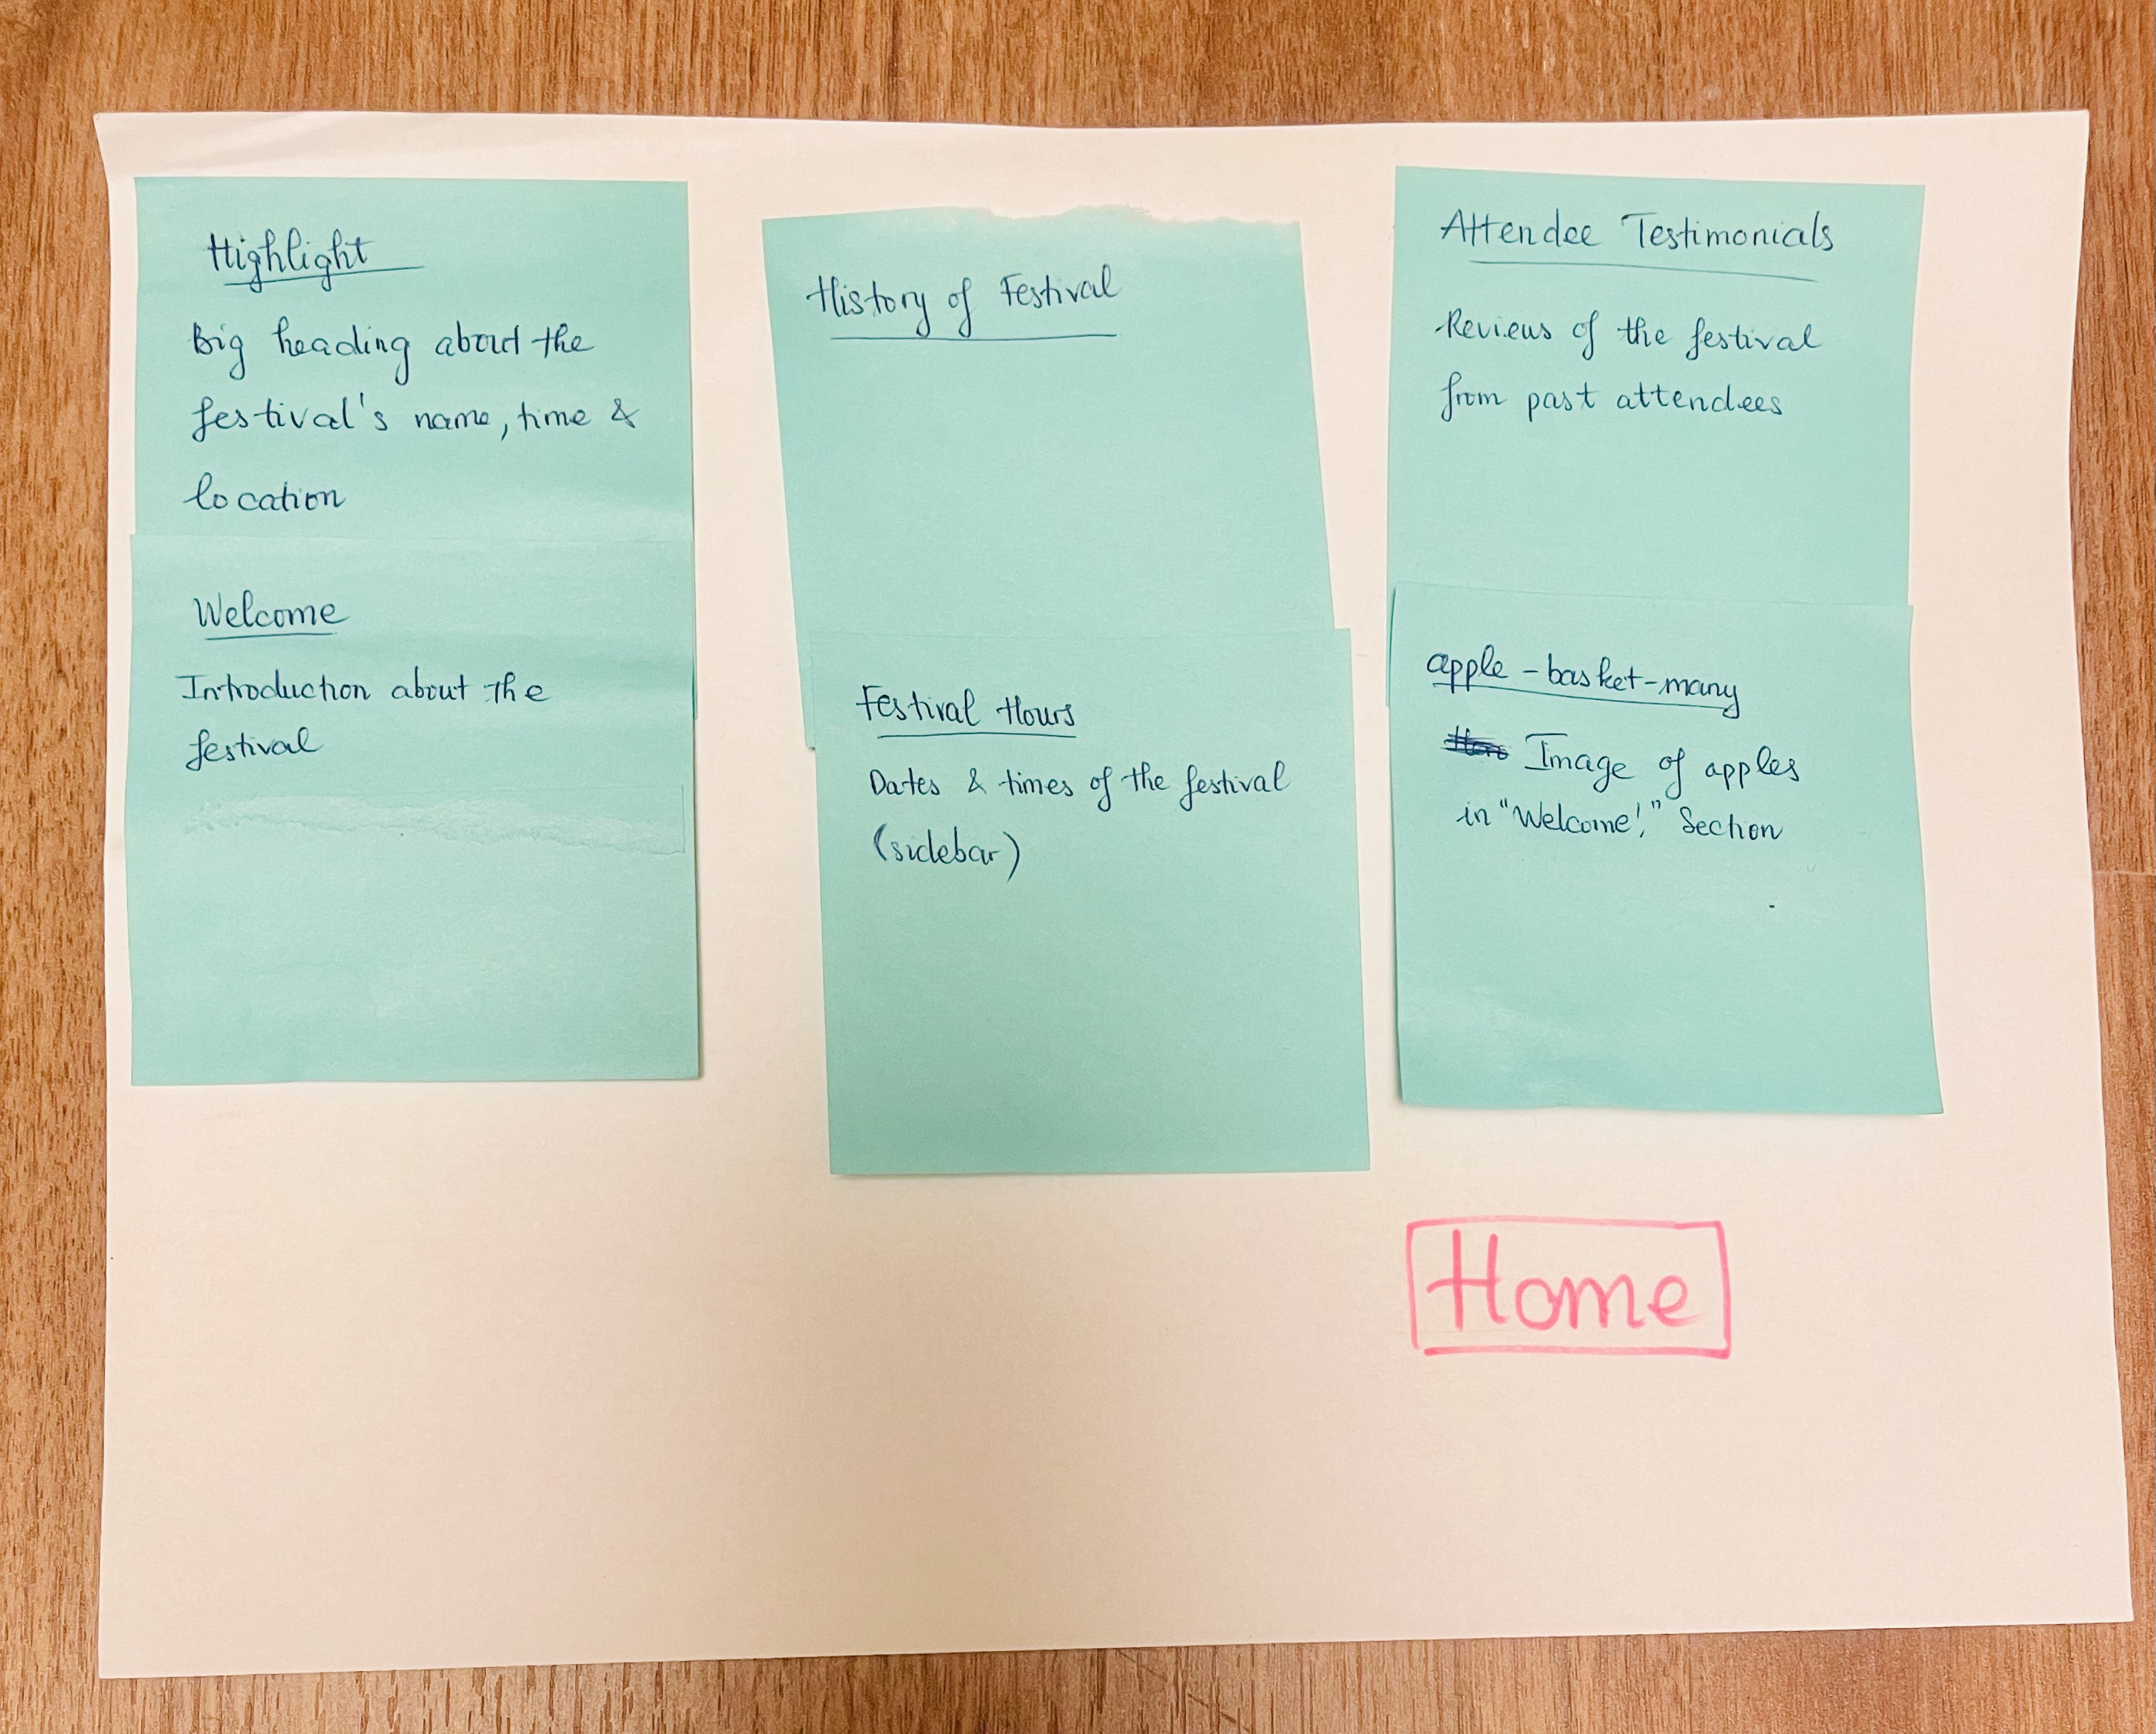 Highlight
Big heading about the
festival's name, time &
location
Welcome
Introduction about the
festival
History of Festival
Festival Hours
Dates & times of the festival
(sidebar)
Attendee Testimonials
Reviews of the festival
from past attendees
apple-basket-many
Image of apples
in "Welcome!" Section
Home